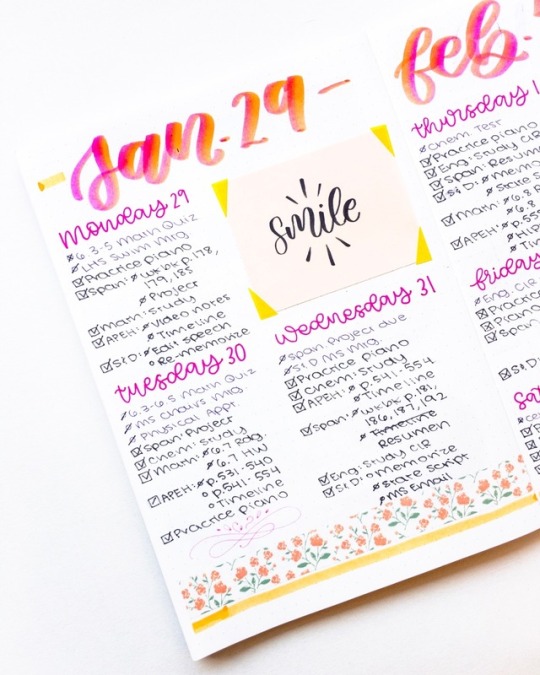 Jan. 29 -
Monday 29
6.3-5 Math Quiz
LHS Swim Mtg.
Practice piano
Span: wkbk p. 178,
179, 185
Project
Math: Study
APEH: Video notes
Timeline
S&D: Edit speech
Re-memorize
tuesday 30
6.3-6.5 Math Quiz
MS Chairs Mtg.
Physical Appt.
Span: Project
Chem: Study
Math: 6.7 Rdg.
6.7 HW
APEH: p. 531-540
p. 541-554
Timeline
Practice piano
smile
Wednesday 31
Span. Project due
S&D MS Mtg.
Practice piano
Chem: Study
APEH: p. 541-554
Timeline
Span: wkbk p. 181,
186, 187, 192
Timeline
Resumen
Eng: Study CIR
S&D: Memorize
State Script
MS Email
feb.
thursday 1
Chem Test
Practice piano
Eng: Study CIR
Span: Resum
S&D: Memo
State S
Math: 6.8
6.8
APEH: p. 5
Tim
friday
Eng. CIR
Practice
Span:
S&D:
Sa